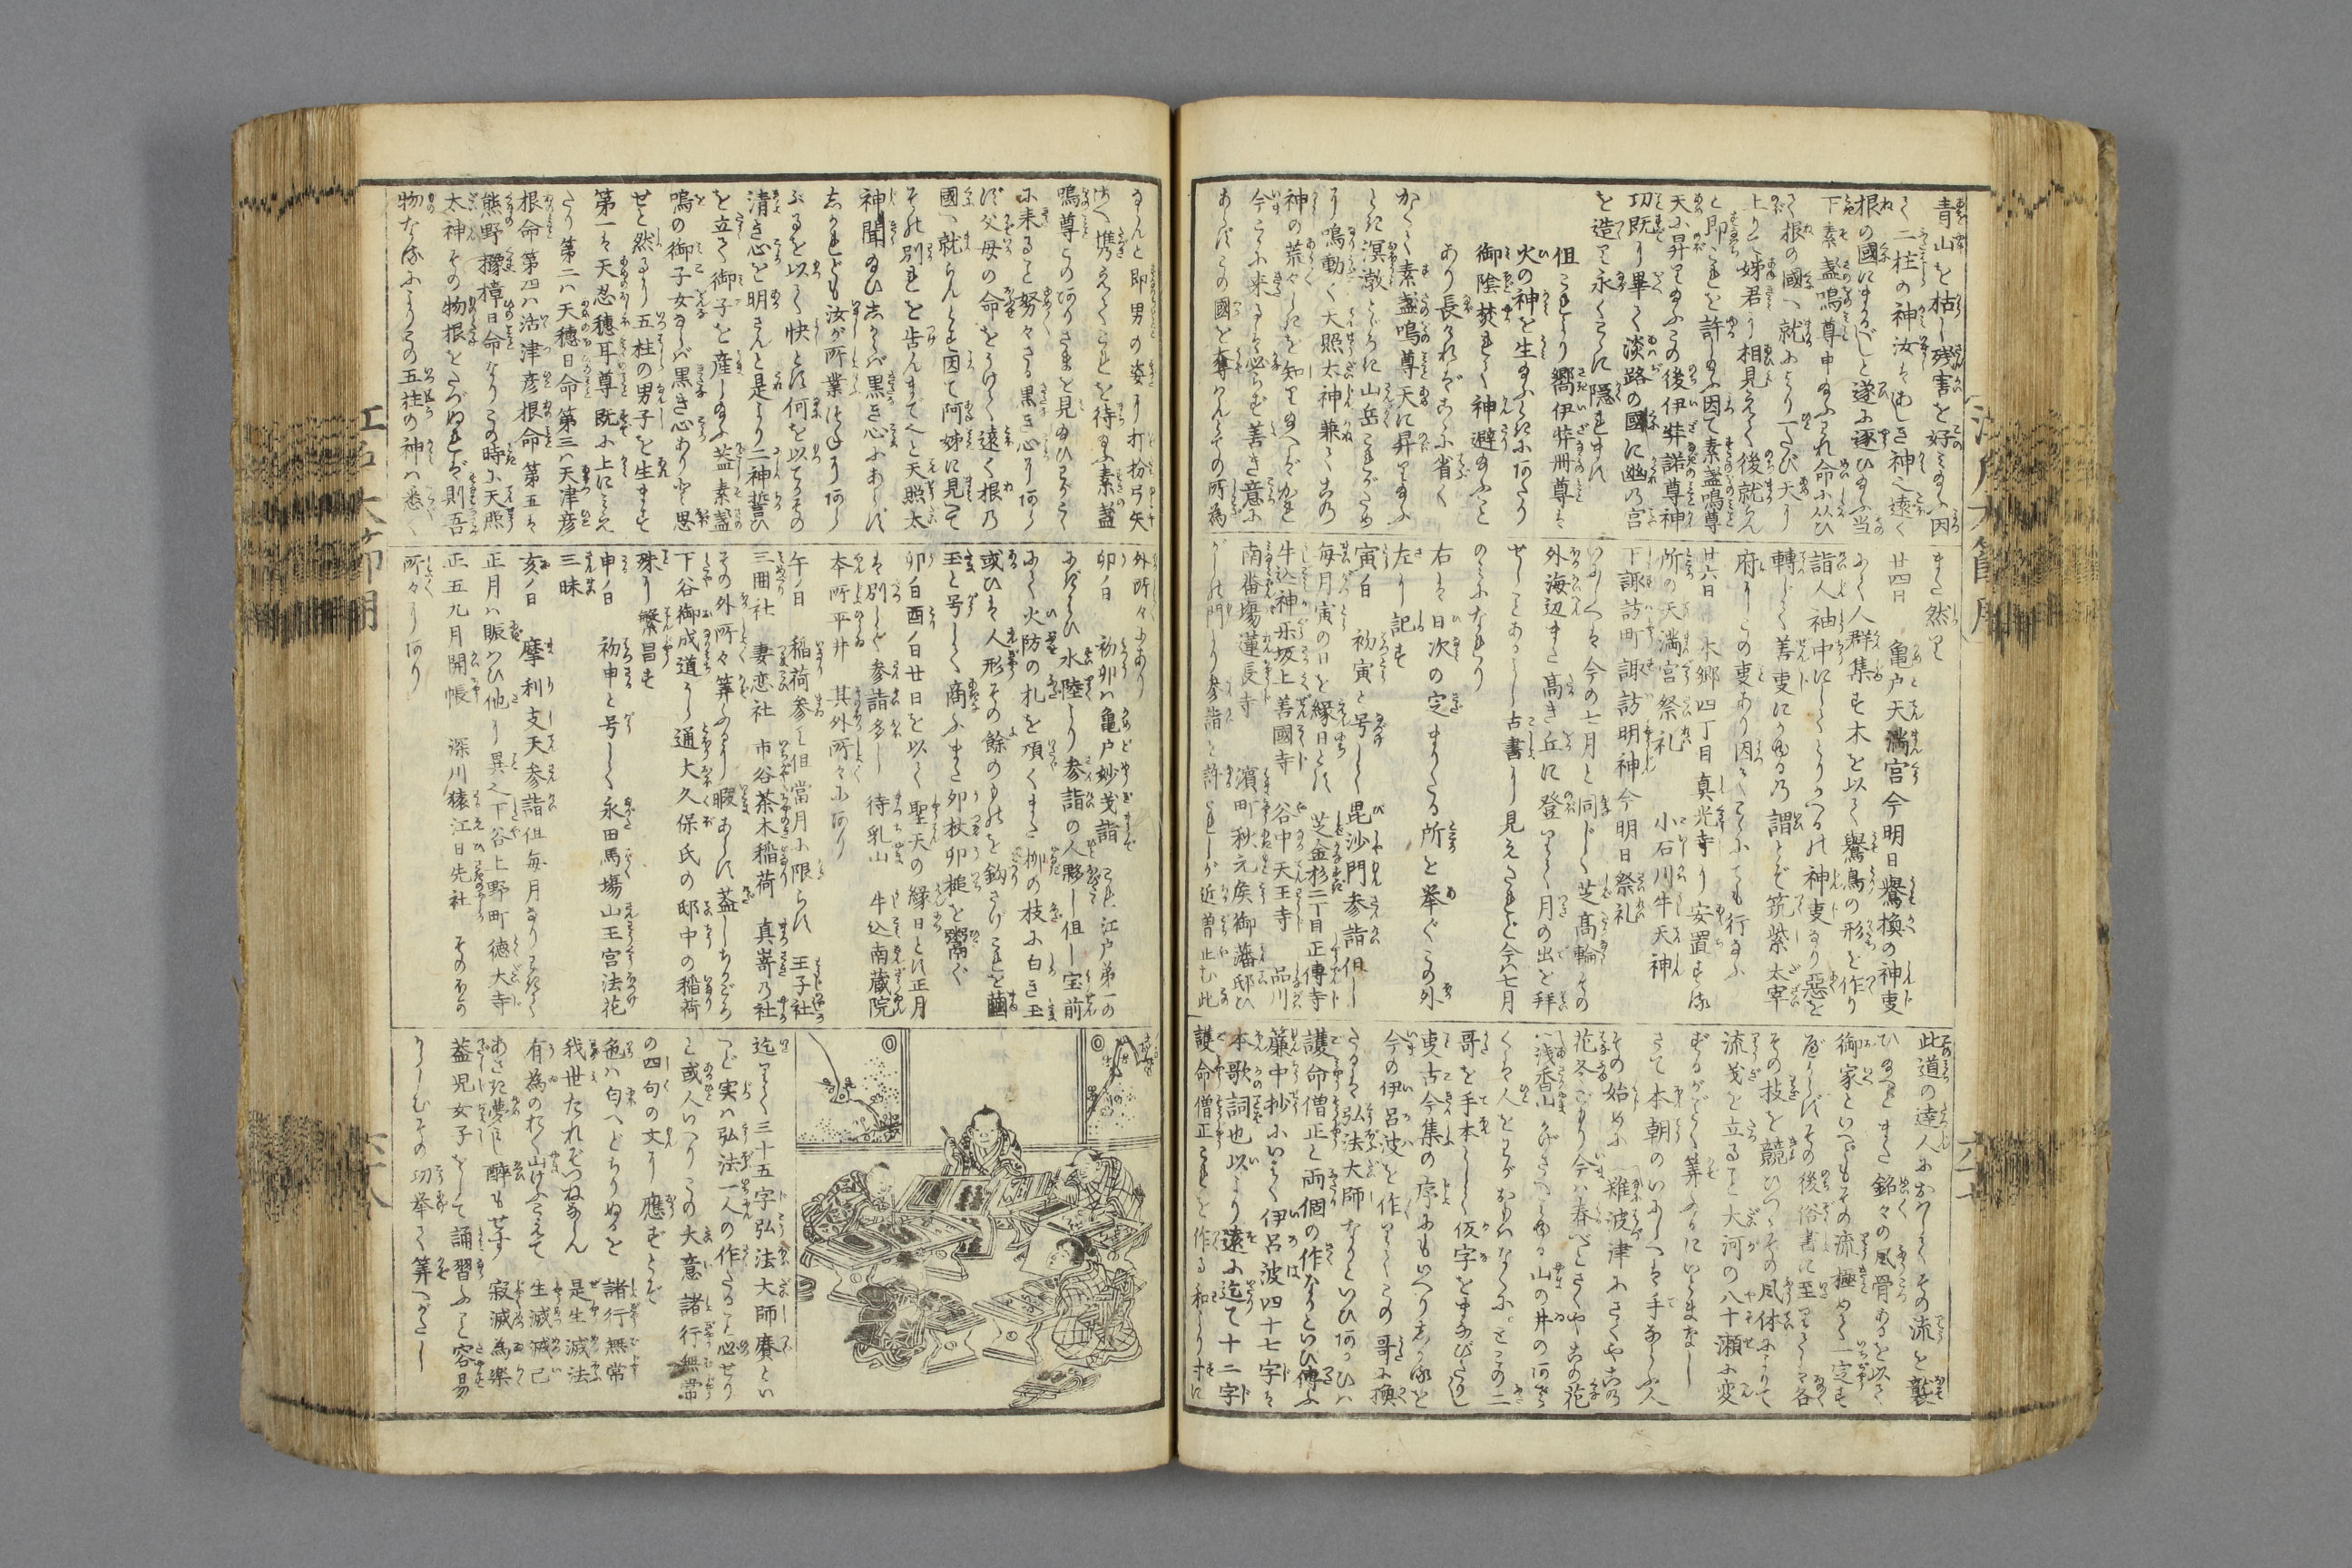 青山を枯し残害を好みたまふ因
て二柱の神汝はあしき神也遠く
根の國にまかるべしと遂に逐ひたまふ当
下素盞嗚尊申たまふやれ命に从ひ
て根の國へ就ふとより一たび天に
上りて姉君に相見えて後就らん
と即これを許したまふ因て素盞嗚尊
天に昇りたまふこの後伊弉諾尊神
功既に畢て淡路の國に幽の宮
を造りて永くこゝに隠れます
但これより嚮伊弉冊尊は
火の神を生たまふときにあたり
御陰焚れて神避たまふこと
あり長ければこゝに省く
かくて素盞嗚尊天に昇りたまふ
ときに溟渤とゞろき山岳これがため
に鳴動く大照太神兼てその
神の荒々しきを知りたまへばかれ
今こゝに来たるは必らず善き意に
あらずこの國を奪はんとての所為
また然り
廿四日 亀戸天満宮今明日鷽換の神事
にて人群集す木を以て鷽鳥の形を作り
詣人袖中にしてとりかへるの神事なり悪を
轉じて善事にかゆるの謂とぞ筑紫太宰
府にこの事あり因てこゝにても行なふ
廿六日 本郷四丁目真光寺に安置する
所の天満宮祭礼 小石川牛天神
下諏訪町諏訪明神今明日祭礼
いにしへは今の七月と同じく芝髙輪その
外海辺また髙き丘に登りて月の出を拝
せしことありし古書に見えたれど今は七月
のみになれり
右は日次の定まりたる所を挙ぐこの外
左に記す
寅ノ日 初寅と号して毘沙門参詣但し
毎月寅の日を縁日とす 芝金杉二丁目正傳寺
牛込神楽坂上善國寺 谷中天王寺 品川
南番場蓮長寺 濱町秋元矦御藩邸ひ
がしの門より参詣を許されしが近曽止む此
此道の達人におはしましてその流を襲
ひたまへどまた銘々の風骨あるを以て
御家といへどもその流極めて一定す
べからずその後俗書に至りては各
その技を競ひつゝその風体によりて
流義を立ること大河の八十瀬に変
ずるがごとく筭ふるにいとまなし
さて本朝のいにしへは手ならふ人
その始めに 難波津にさくやこの花
冬ごもり今は春べとさくやこの花
浅香山かげさへ見ゆる山の井のあさ
くは人をおもふものかは この二
哥を手本として仮字をまなびたりし
事古今集の序にもいへりしかるを
今の伊呂波を作りてこの哥に換
たるは弘法大師なりといひあるひは
護命僧正と両個の作なりといひ傳ふ
簾中抄にいはく伊呂波四十七字は
本歌詞也以より遠に迄て十二字
護命僧正これを作る和より寸に
ならんと即男の姿に打扮弓矢
さへ携えてこれを待たまふ素盞
嗚尊このありさまを見たまひわがこゝ
に来ること努々さる黒き心にあら
ず父母の命をうけて遠く根の
國へ就らんとす因て阿姉に見えて
その別れを告んまでへと天照太
神聞たまひしからば黒き心にあらず
しかれども汝が所業はやくにあら
ぶるを以て快とす何を以てその
清き心を明さんと是より二神誓ひ
を立て御子を産したまふ盖素盞
嗚の御子女ならば黒き心ありと思
せと然るに五柱の男子を生ます
第一は天忍穂耳尊既に上にみえ
たり第二ハ天穂日命第三ハ天津彦
根命第四ハ活津彦根命第五は
熊野櫲樟日命なりこの時に天照
太神その物根をたづぬれば則吾
物なるによりこの五柱の神ハ悉く
外所々にあり
卯ノ日 初卯ハ亀戸妙義詣 これ江戸第一の
にぎはひ水陸より参詣の人夥し但し宝前
にて火防の札を頂くまた栁の枝に白き玉
或ひは人形その餘のものを釣さげこれを繭
玉と号して商ふまた卯杖卯槌を鬻ぐ
卯ノ日酉ノ日廿日を以て聖天の縁日とす正月
は別して参詣多し 待乳山 牛込南蔵院
本所平井 其外所々にあり
午ノ日 稲荷参り但當月に限らす 王子社
三囲社 妻恋社 市谷茶木稲荷 真嵜の社
その外所々筭ふるに暇あらす盖しちかごろ
下谷御成道に通大久保氏の邸中の稲荷
殊に繁昌す
申ノ日 初申と号して永田馬塲山王宮法花
三昧
亥ノ日 摩利支天参詣但毎月なりこと
正月ハ賑はひ他に異也下谷上野町徳大寺
正五九月開帳 深川猿江日先社 そのほか
所々にあり
迄りて三十五字弘法大師賡とい
へど実ハ弘法一人の作たること必せり
と或人いへりこの大意諸行無常
の四句の文に應ずとぞ
色ハ匂へどちりぬるを 諸行無常
我世たれぞつねならん 是生滅法
有為のおく山けふこえて 生滅滅已
あさき夢みじ酔もせず 寂滅為楽
盖児女子をして誦習ふこと容易
からしむその功挙て筭へがたし
江戸大節用
六十七
江戸大節用
六十八